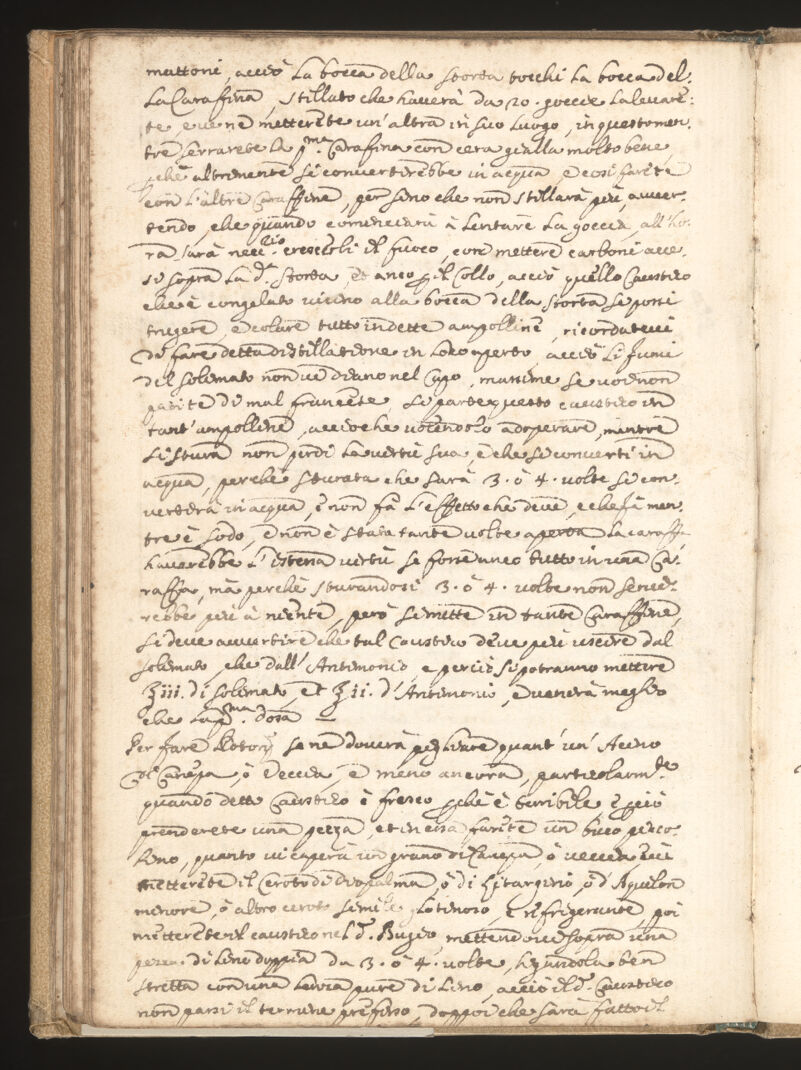 mattoni, acciò la bocca della storta tocchi la bocca del-
la Caraffina, stillato che haverà da 20. goccie la levare-
te, e ve ne metterete un'altra in suo luogo, in questo men-
tre serrarete la p.ma Carafina con cera gialla molto bene,
che altrimente si convertirebbe in acqua, e così farete
con l'altre Caraffine, per sino che non stillarà più, avver-
tendo, che quando comenciarà à lentare la goccia, all'ho-
ra sarà nec.rio crescerli il fuoco, con mettere carboni acce-
si sopra la d.a storta, et anco p il Collo, acciò quello Caustico
che è congelato vicino alla bocca della storta si possi
trugere e colare tutto in dette ampolline, ricordatevi
di fare detta distillatione in loco aperto, acciò li fumi
del solimato non ve diano nel Capo, massime se voi non
patite di mal francese. Si parte questo caustico in
tant'ampolline, acciò che volendolo adoperare, mentre
si stura non perdi la vertù sua, e che si converti in
acqua, perchè sturata che sarà 3. ò 4. volte si con-
vertirà in acqua, e non fà l'effetto che deve, e che fà men-
tre è sodo, e non è stata tante volte aperta la caraffa
haverebbe l'istessa vertù se fosse anco tutto in una Ca-
raffa, mà perchè sturandosi 3. ò 4. volte non servi-
rebbe più à niente, però si mette in tante Caraffine,
si deve avvertire che tal Caustico deve più uscire dal
solimato, che dall'Antimonio, e perciò si potranno mettere
℥iii. di solimato, et ℥ii. d'Antimonio, e venerà meglio
che la p.ma dosa
Per fare Rotorij se ne doverà pigliare quant'un'Acino
di Canepa, ò Veccia, e meno ancora, particolarm.te
quando detto Caustico è fresco pchè è terribile e pciò
prenderete una pezza, et in essa farete un buco picco-
lino, quanto vi caperà un grano di Canepa, ò veccia, e vi
metterete il Ceroto di diapalma, ò di Litargerio, ò d'Aquilon
menore, ò altro ceroto simile glotinoso, e refrigerante, poi
metterete il caustico nel d.o Bugio, mettendovi sopra una
pezza di lino doppia da 3. ò 4. volte, legandola ben
stretta con una lenza pure di Lino, acciò il d.o Caustico
non passi il termine prefisso, doppoi che sarà fatto il